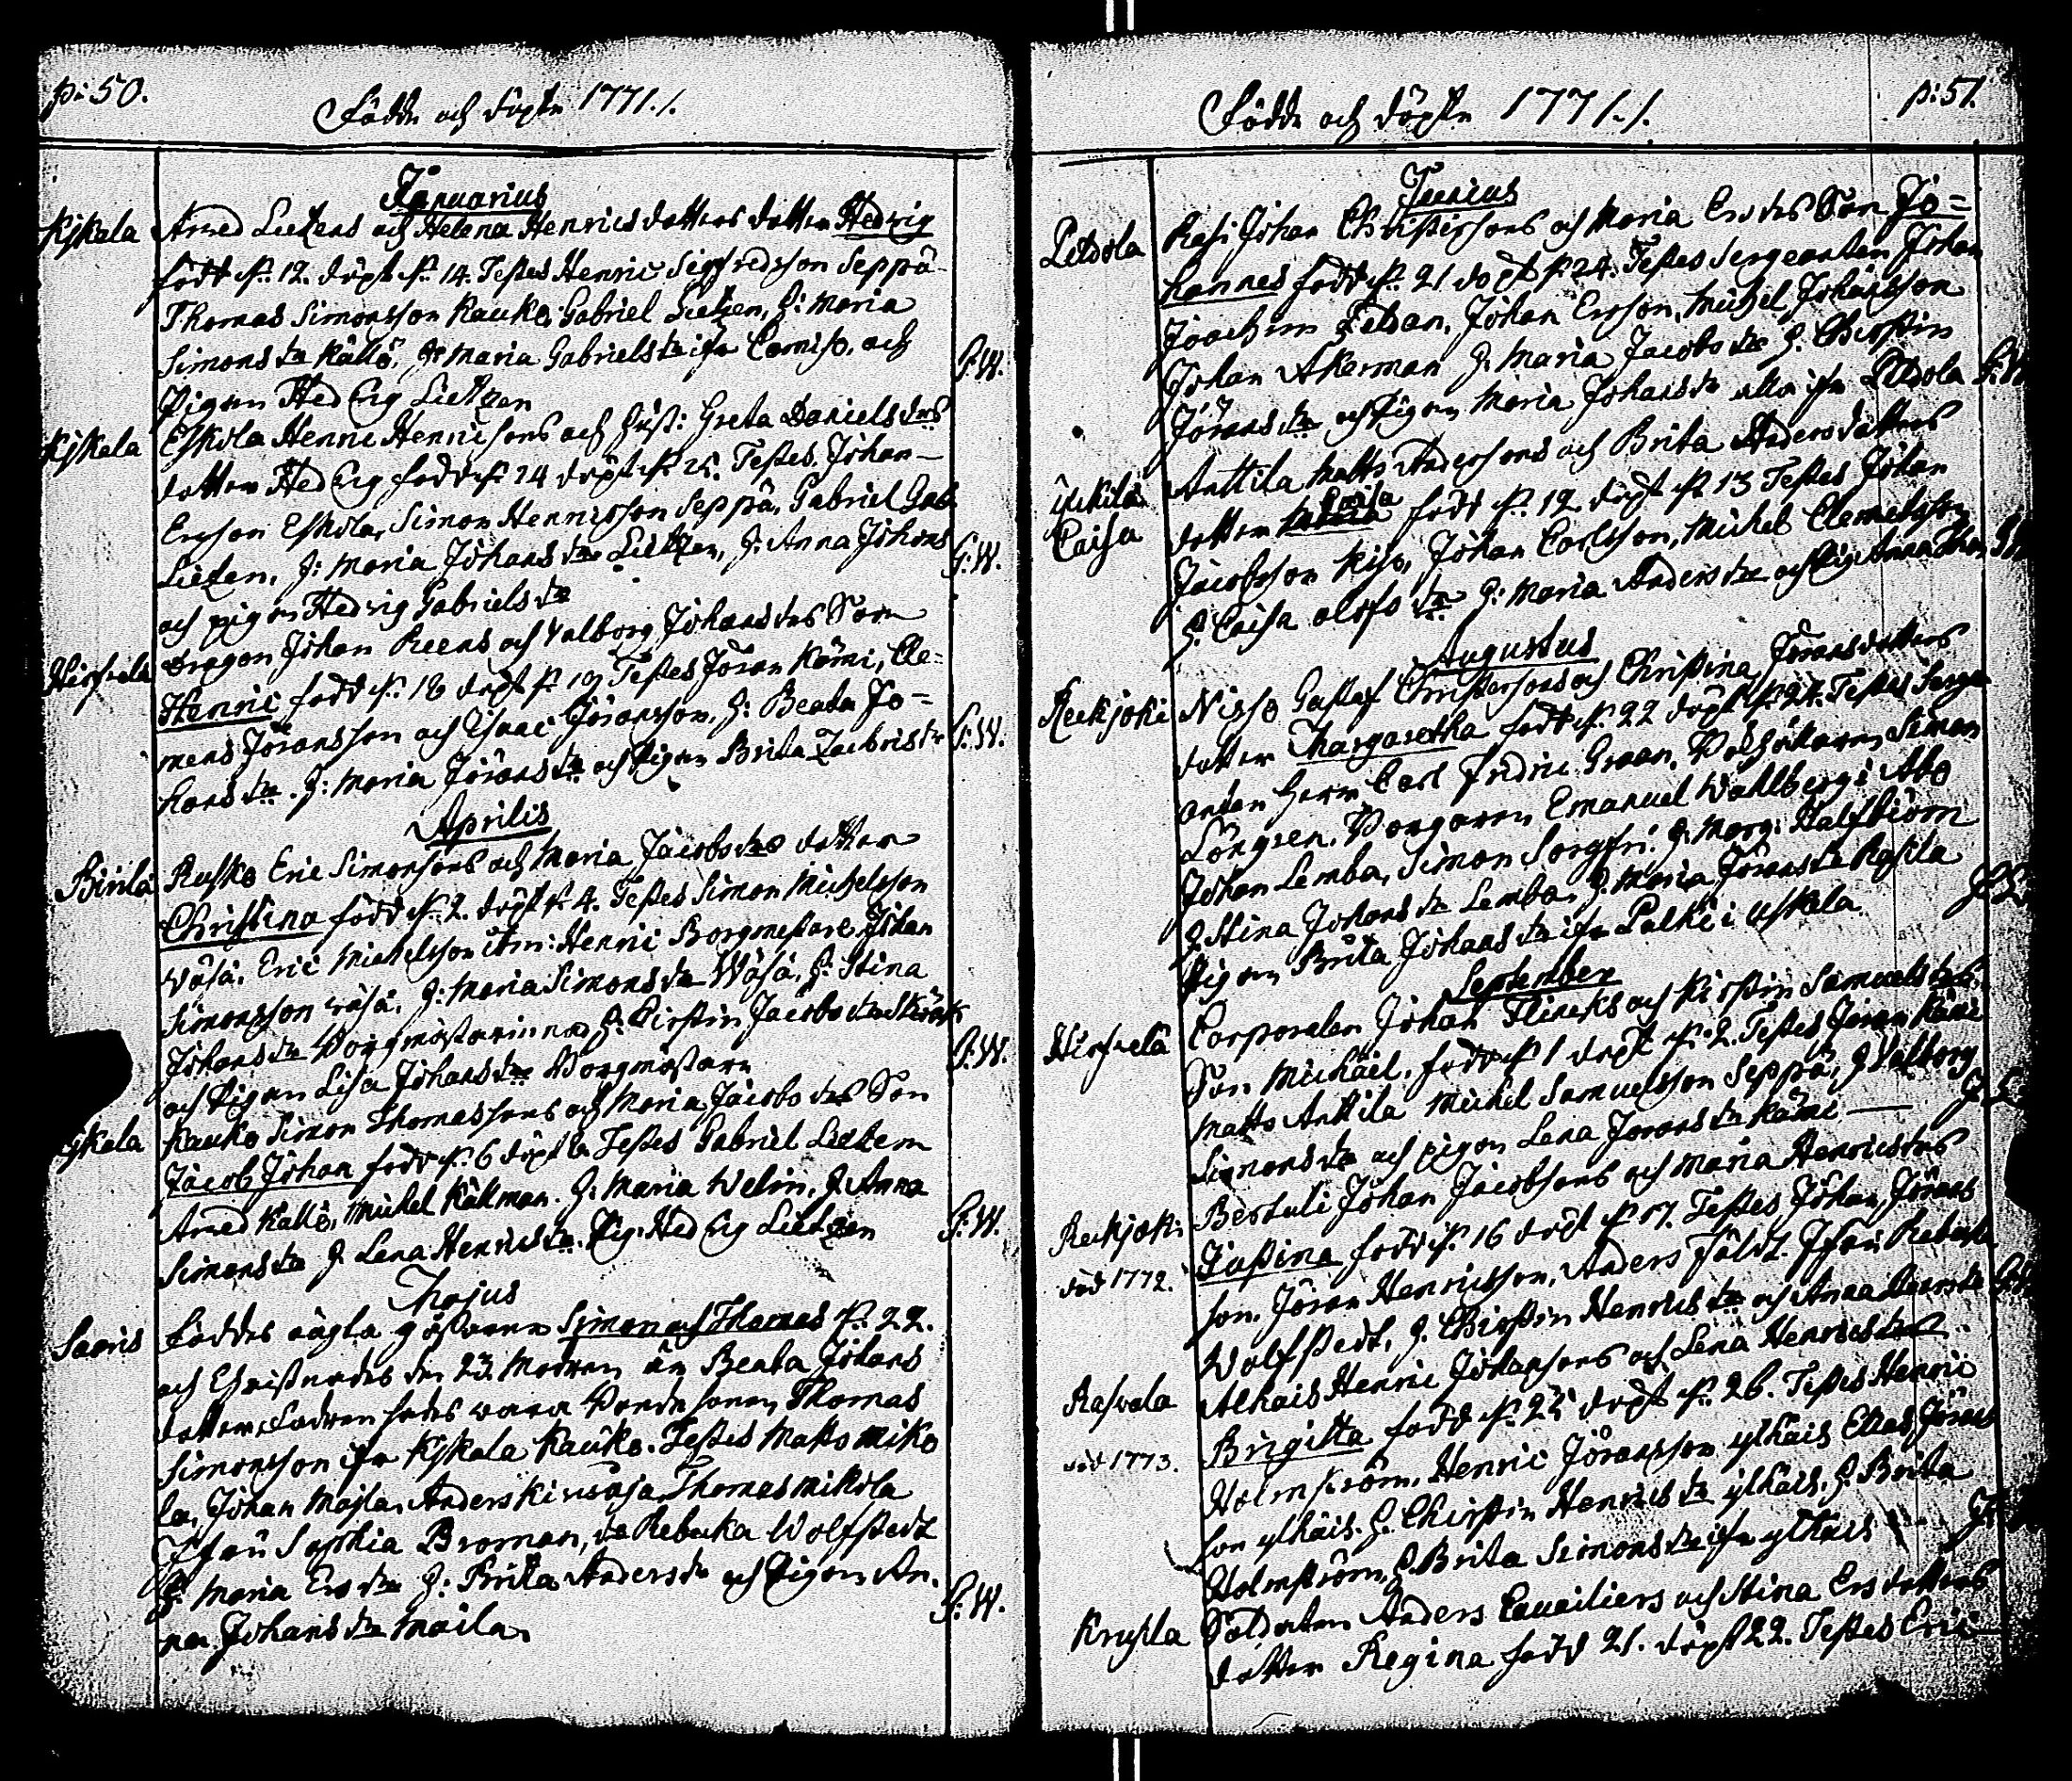 p: 50.
Födde och döpte 1771./.
Januarius
Kjskala Arved Lietzens och Helena Henrics dotters dotter Hedvig
född d. 12. döpt d. 14. Testes Henric Sigfredsson Seppä
Thomas Simonsson Kauko, Gabriel Lietzen, h: Maria
Simons dr Källö, h: Maria Gabriels dr ifr Comiso, och
Pigan Hedvig Lietzen G:W.
Kjskala Eskola Henric Henricsons och hust: Greta Daniels drs
dotter Hedvig född d. 24 döpt d. 25. Testes Johan
Ersson Eskola, Simon Henricsson Seppä, Gabriel Gab
Lietzen, h: Maria Johans dr Lietzen, h: Anna Johans
och pigan Hedvig Gabriels dr G:W.
Dragon Johan Reens och Valborg Johans drs Son
Henric född d. 18 döpt d. 19 Testes Jöran Kämi, Cle=
mens Jöransson och Isaac Jöransson, h: Beata Jo=
hans dr. h: Maria Jörans dr och Pigan Brita Zachris dr G:W.
Aprilis
Ruska Eric Simonsons och Maria Jacobs drs dotter
Christina född d. 2. döpt d. 4. Testes Simon Michelsson
Wäsä, Eric Michelsson itm: Henric Borgmestare Johan
Simonsson wäsä, h: Maria Simons dr Wäsä, h: Stina
Johans dr Borgmästarinna, h: Cirstin Jacobs dr
och Pigan Lisa Johans dr Borgmästare G:W.
Kjskala Kauko Simon Thomassons och Maria Jacobs drs Son
Jacob Johan född d. 6 döpt Testes Gabriel Lietzen
Arved Källö, Michel Källman. h: Maria Welin, h: Anna
Simons dr h Lena Henrics dr. Pig: Hedvig Lietzen G:W.
Majus
Saaris Föddes oägta gossarne Simon och Thomas d. 22.
och Christnades den 23. Modren är Beata Johans
dotter, Fadren sades vara Bondesonen Thomas
Simonsson ifr Kjskala Kauko. Testes Matts Miko
la, Johan Majla, Anders Thomas Mikola
Jfru Sophia Broman, do Rebecka Wolfstedt
h: Maria Ers dr h: Brita Anders dr och Pigan An.
na Johans dr Maila. G:W.
Födde och döpte 1771./.
p: 51.
Junius
Petsola Johan Christersons och Maria Ers drs Son Jo=
hannes född d. 21 döpt d. 24. Testes Sergeanten Johan
Joachim Johan Ersson, Michel Johansson
Johan Åkerman h: Maria Jacobs dr h. Chirstin
Jörans dr och Pigan Maria Johans dr alla ifr Petsola
Caisa Anttila Matts Andersons och Brita Anders dotters
dotter Caisa född d. 12 döpt d. 13 Testes Johan
Jacobsson Kiso, Johan Carlsson, Michel Clemetsson
h. Caisa Olofs dr h: Maria Anders dr och Pig: Anna
Augustus
Reckjoki Gustaf Christersons och Christina Jörans dotters
dotter Margaretha född d. 22 döpt d. 24. Testes Serge
anten Herr Carl Fridric Graan, Simon
Löngren, Borgaren Emanuel Wahlberg i Åbo
Johan Lemba, Simon Sorgfri. h: Marg: Halfbiörn
h. Stina Johans dr Lemba, h. Maria Jörans dr
Pigan Brita Johans dr ifr i Uskela.
September
Corporalen Johan Flincks och Kirstin Samuels drs
Son Michäel, född d. 1 döpt d. 2. Testes Jöran Kämi
Matts Anttila Michel Samuelsson Seppä, h Valborg
Simons dr och pigan Lena Jörans dr Kämi
Reckjoki
död 1772. Bertuli Johan Jacobsons och Maria Henrics drs
Justina född d. 16 döpt d. 17. Testes Johan Jörans
son, Jöran Henricsson, Anders Fäldt. Jfru Rebecka
Wolfstedt, h. Chirstin Henrics dr och Anna
Rasvala
död 1773. Alhais Henric Johansons och Lena Henrics drs
Brigitta född d. 25 döpt d. 26. Testes Henric
Holmström, Henric Jöransson ylhäis Elias Jörans
son ylhäis. h. Chirstin Henrics dr ylhäis. h. Brita
Holmström, h. Brita Simons dr ifr ylhäis
Soldaten Anders Cavailiers och Stina Ersdotters
dotter Regina född 21. döpt 22. Testes Eric